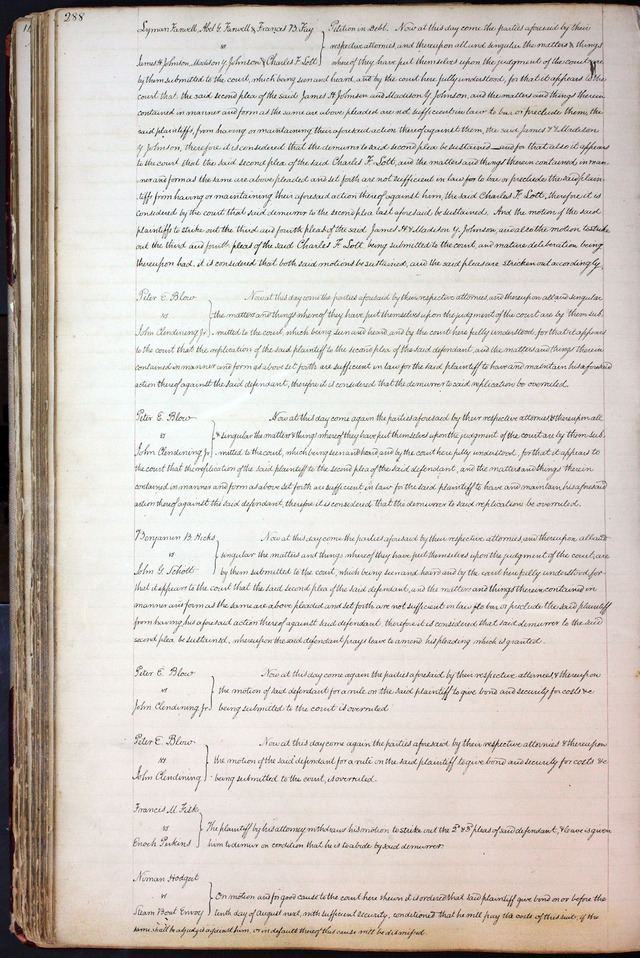 288
Lyman Farwell, Abel G. Farwell & Francis B. Fay } Petition in Debt. Now at this day come the parties aforesaid by their
vs respective attornies, and thereupon all and singular the matters & things
James H. Johnson, Madison Y. Johnson & Charles F. Lott where of they have put themselves upon the judgment of the court are
by them submitted to the court, which being seen and heard, and by the court here fully understood, for that it appears to the
court that the said second plea of the said James H. Johnson and Madison Y. Johnson, and the matters and things therein
contained in manner and form as the same are above pleaded are not sufficient in law to bar or preclude them, the
said plaintiffs, from having or maintaining their aforesaid action thereof against them, the said James H & Madison
Y. Johnson, therefore it is considered that the demurrer to said second plea be sustained and for that also it appears
to the court that the said second plea of the said Charles F. Lott, and the matters and things therein contained in man-
ner and form as the same are above pleaded and set forth are not sufficient in law for to bar or preclude the said plain-
tiffs from having or maintaining their aforesaid action thereof against him, the said Charles F. Lott, therefore it is
considered by the court that said demurrer to the second plea last aforesaid be sustained. And the motion of the said
plaintiffs to strike out the third and fourth pleas of the said James H & Madison Y. Johnson, and also the motion to strike
out the third and fourth pleas of the said Charles F. Lott, being submitted to the court, and mature deliberation being
thereupon had, it is considered that both said motions be sustained, and the said pleas are stricken out accordingly.
Peter E. Blow Now at this day come the parties aforesaid by their respective attornies, and thereupon all and singular
vs the matters and things where of they have put themselves upon the judgment of the court are by them sub-
John Clendining Jr } mitted to the court, which being seen and heard, and by the court here fully understood, for that it appears
to the court that the replication of the said plaintiff to the second plea of the said defendant, and the matters and things therein
contained in manner and form as above set forth are sufficient in law for the said plaintiff to have and maintain his aforesaid
action thereof against the said defendant, therefore it is considered that the demurrer to said replication be overruled.
Peter E. Blow Now at this day come again the parties aforesaid by their respective attornies & thereupon all
vs & singular the matters & things where of they have put themselves upon the judgment of the court are by them sub-
John Clendining Jr } mitted to the court, which being seen and heard and by the court here fully understood, for that it appears to
the court that the replication of the said plaintiff to the second plea of the said defendant, and the matters and things therein
contained in manner and form as above set forth are sufficient in law for the said plaintiff to have and maintain his aforesaid
action thereof against the said defendant, therefore it is considered that the demurrer to said replication be overruled.
Benjamin B. Hicks Now at this day come the parties aforesaid by their respective attornies, and thereupon all and
vs singular the matters and things where of they have put themselves upon the judgment of the court, are
John G. Schott } by them submitted to the court, which being seen and heard and by the court here fully understood, for
that it appears to the court that the said second plea of the said defendant, and the matters and things therein contained in
manner and form as the same are above pleaded and set forth are not sufficient in law to bar or preclude the said plaintiff
from having his aforesaid action thereof against said defendant, therefore it is considered that said demurrer to the said
second plea be sustained, whereupon the said defendant prays leave to amend his pleading which is granted.
Peter E. Blow Now at this day come again the parties aforesaid by their respective attornies, & thereupon
vs the motion of said defendant for a rule on the said plaintiff to give bond and security for costs &c
John Clendining Jr } being submitted to the court is overruled
Peter E. Blow Now at this day come again the parties aforesaid by their respective attornies & thereupon
vs the motion of the said defendant for a rule on the said plaintiff to give bond and security for costs &c
John Clendining } being submitted to the court, is overruled.
Francis M. Fisk
vs The plaintiff by his attorney withdraws his motion to strike out the 2d & 3d pleas of said defendant, & leave is given
Enoch Perkins } him to demur on condition that he is to abide by said demurrer.
Noman Hodget
vs On motion and for good cause to the court here shewn it is ordered that said plaintiff give bond on or before the
Steam Boat Envoy } tenth day of August next, with sufficient security, conditioned that he will pay the costs of this suit, if the
same shall be adjudged against him, or in default thereof this cause will be dismissed.